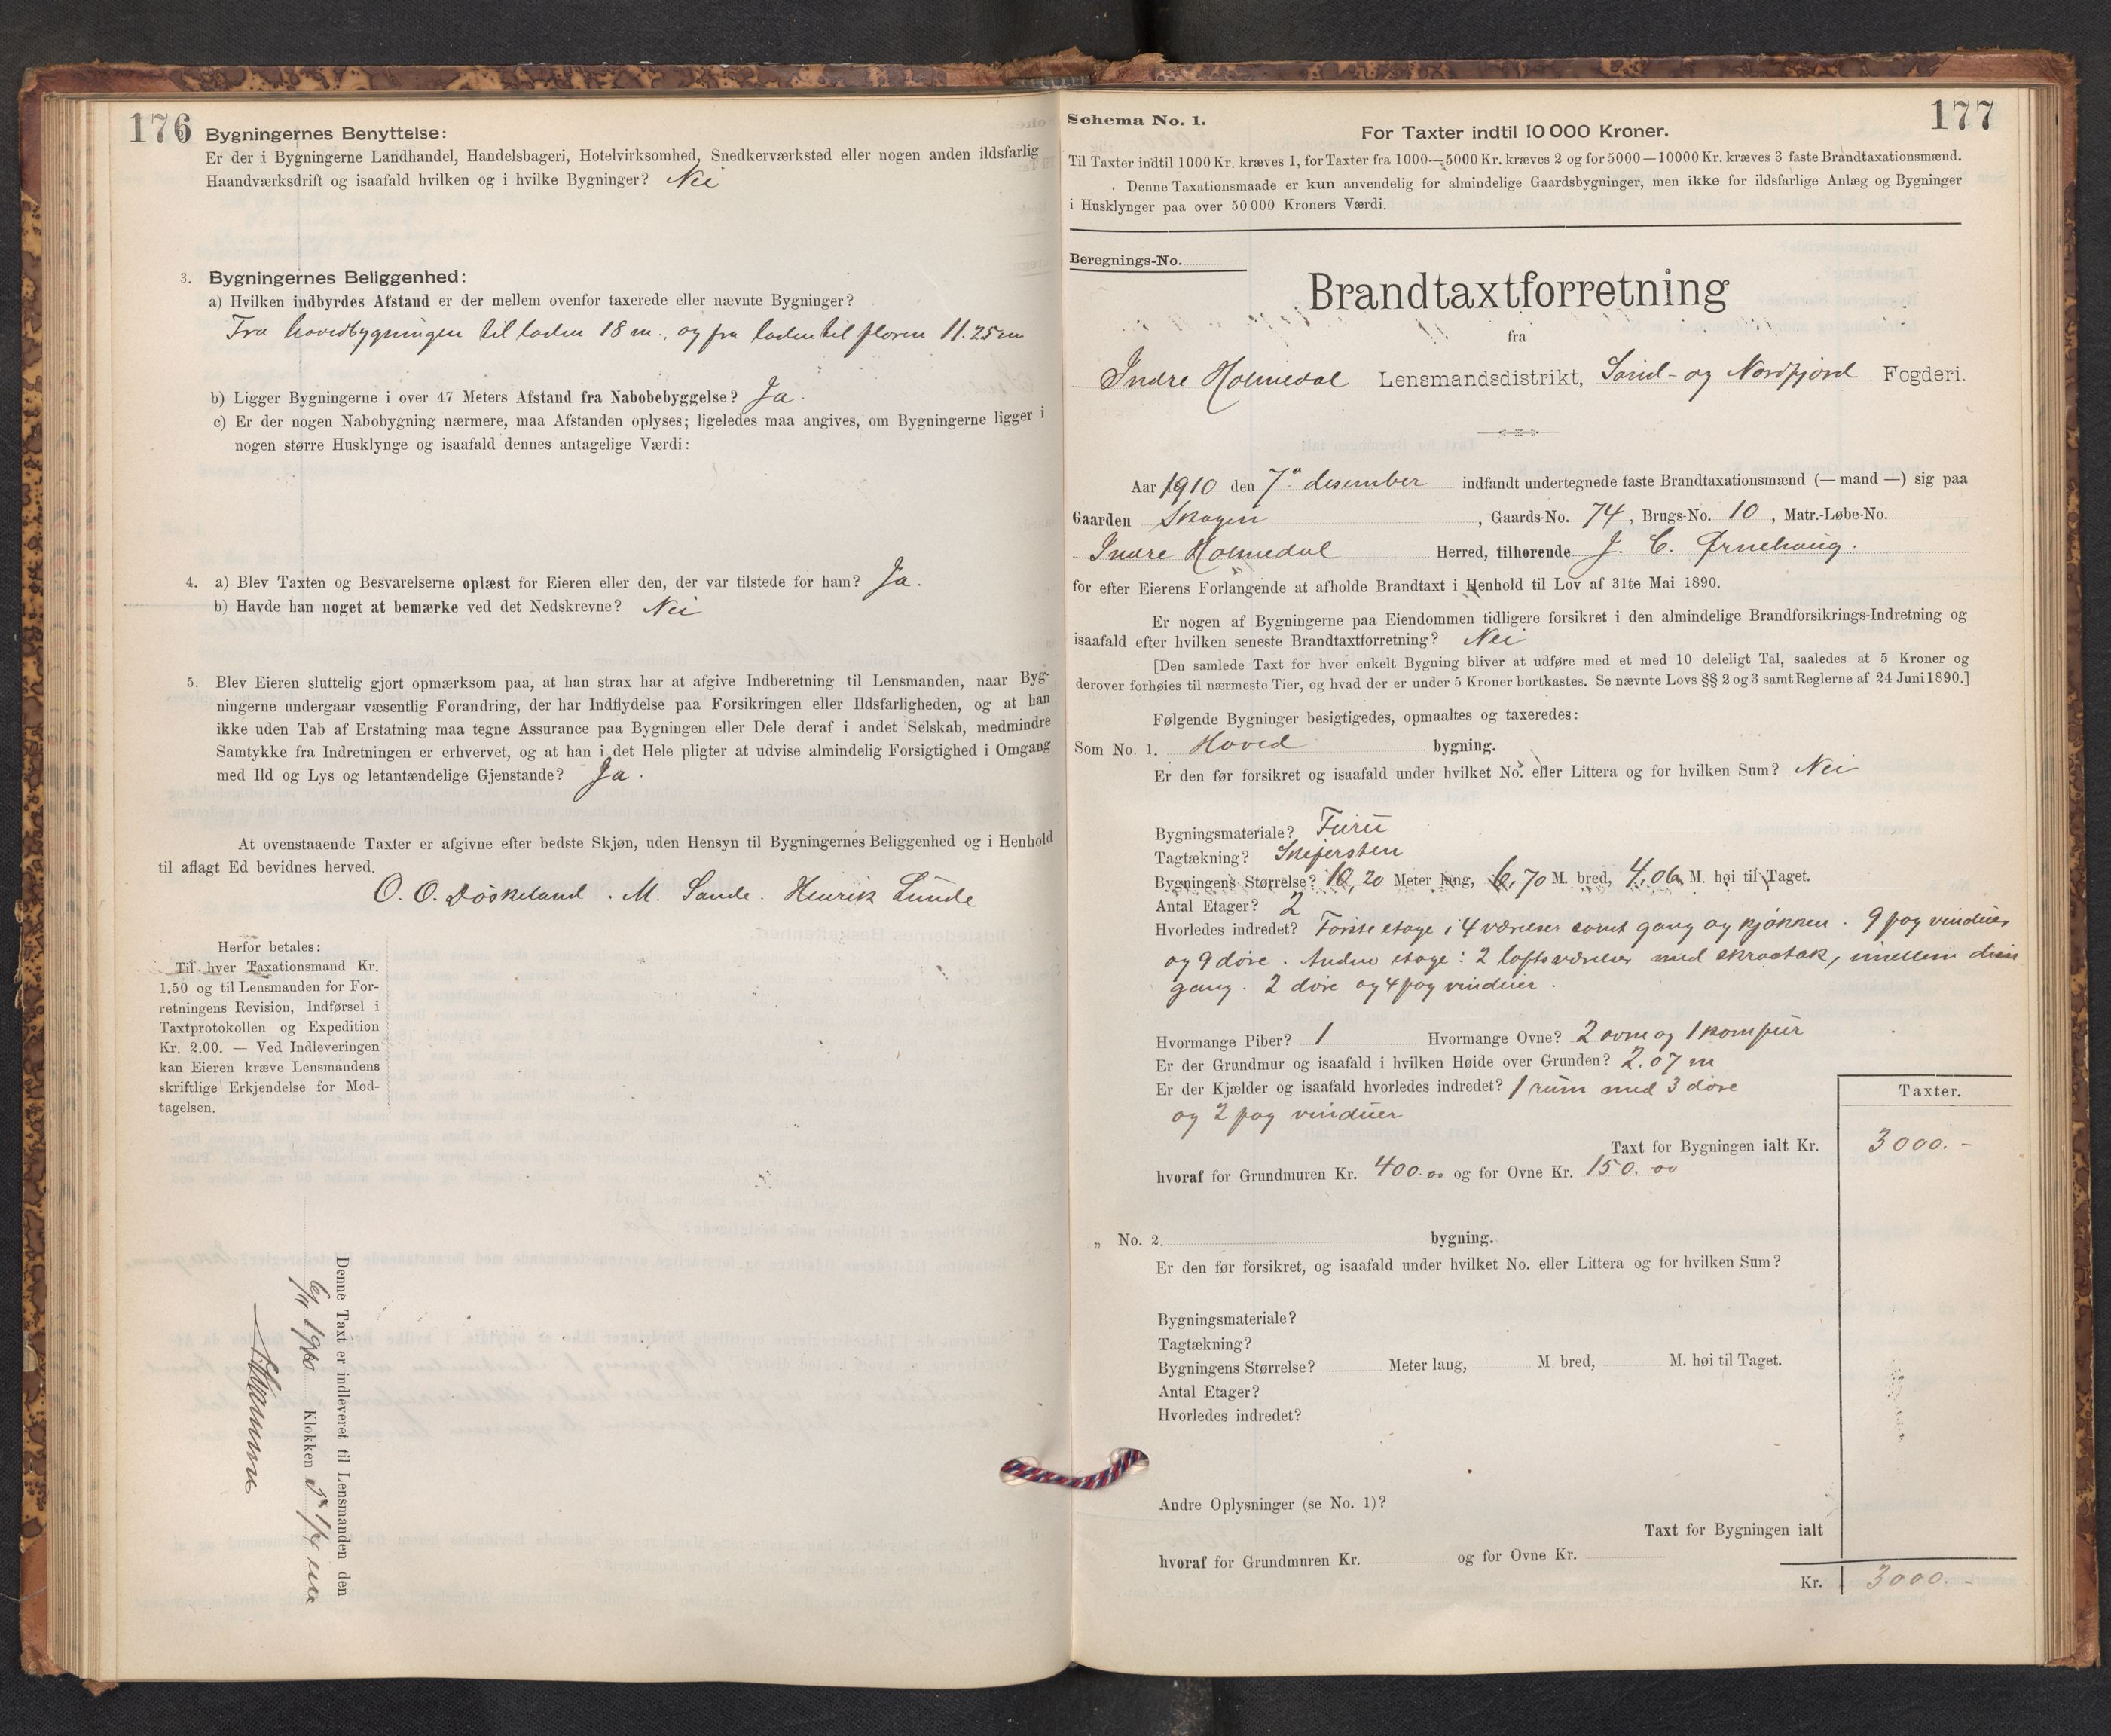 176
Bygningernes Benyttelse:
Er der i Bygningerne Landhandel, Handelsbageri, Hotelvirksomhed, Snedkerværksted eller nogen anden ildsfarlig
Haandværksdrift og isaafald hvilken og i hvilke Bygninger? Nei
3. Bygningernes Beliggenhed:
a) Hvilken indbyrdes Afstand er der mellem ovenfor taxerede eller nævnte Bygninger?
Fra hovedbygningen til laden 18 m., og fra laden til floren 11.25 m
b) Ligger Bygningerne i over 47 Meters Afstand fra Nabobebyggelse? Ja.
c) Er der nogen Nabobygning nærmere, maa Afstanden oplyses; ligeledes maa angives, om Bygningerne ligger i
nogen større Husklynge og isaafald dennes antagelige Værdi:
4. a) Blev Taxten og Besvarelserne oplæst for Eieren eller den, der var tilstede for ham? Ja.
b) Havde han noget at bemærke ved det Nedskrevne? Nei
5. Blev Eieren sluttelig gjort opmærksom paa, at han strax har at afgive Indberetning til Lensmanden, naar Byg-
ningerne undergaar væsentlig Forandring, der har Indflydelse paa Forsikringen eller Ildsfarligheden, og at han
ikke uden Tab af Erstatning maa tegne Assurance paa Bygningen eller Dele deraf i andet Selskab, medmindre
Samtykke fra Indretningen er erhvervet, og at han i det Hele pligter at udvise almindelig Forsigtighed i Omgang
med Ild og Lys og letantændelige Gjenstande? Ja.
At ovenstaaende Taxter er afgivne efter bedste Skjøn, uden Hensyn til Bygningernes Beliggenhed og i Henhold
til aflagt Ed bevidnes herved.
O. O. Døskeland. M. Sande. Henrik Lunde
Herfor betales:
Til hver Taxationsmand Kr.
1.50 og til Lensmanden for For-
retningens Revision, Indførsel i
Taxtprotokollen og Expedition
Kr. 2.00. — Ved Indleveringen
kan Eieren kræve Lensmandens
skriftlige Erkjendelse for Mod-
tagelsen.
Denne Taxt er indleveret til Lensmanden den
1910 Klokken
177
Schema No. 1.
For Taxter indtil 10 000 Kroner.
Til Taxter indtil 1000 Kr. kræves 1, for Taxter fra 1000—5000 Kr. kræves 2 og for 5000—10000 Kr. kræves 3 faste Brandtaxationsmænd.
Denne Taxationsmaade er kun anvendelig for almindelige Gaardsbygninger, men ikke for ildsfarlige Anlæg og Bygninger
i Husklynger paa over 50 000 Kroners Værdi.
Beregnings-No.
Brandtaxtforretning
fra
Indre Holmedal Lensmandsdistrikt, Sønd- og Nordfjord Fogderi.
Aar 1910 den 7. desember indfandt undertegnede faste Brandtaxationsmænd (— mand —) sig paa
Gaarden Skogen, Gaards-No. 74, Brugs-No. 10, Matr.-Løbe-No.
Indre Holmedal Herred, tilhørende J. C. Ørnehaug.
for efter Eierens Forlangende at afholde Brandtaxt i Henhold til Lov af 31te Mai 1890.
Er nogen af Bygningerne paa Eiendommen tidligere forsikret i den almindelige Brandforsikrings-Indretning og
isaafald efter hvilken seneste Brandtaxtforretning? Nei
[Den samlede Taxt for hver enkelt Bygning bliver at udføre med et med 10 deleligt Tal, saaledes at 5 Kroner og
derover forhøies til nærmeste Tier, og hvad der er under 5 Kroner bortkastes. Se nævnte Lovs §§ 2 og 3 samt Reglerne af 24 Juni 1890.]
Følgende Bygninger besigtigedes, opmaaltes og taxeredes:
Som No. 1. Hoved bygning.
Er den før forsikret og isaafald under hvilket No. eller Littera og for hvilken Sum? Nei
Bygningsmateriale? Furu
Tagtækning? Skifersten
Bygningens Størrelse? 10,20 Meter lang, 6,70 M. bred, 4,06 M. høi til Taget.
Antal Etager? 2
Hvorledes indredet? Første etage i 4 værelser samt gang og kjøkken. 9 fag vinduer
og 9 døre. Anden etage: 2 loftsværelser med skraatak, imellem disse
gang. 2 døre og 4 fag vinduer.
Hvormange Piber? 1 Hvormange Ovne? 2 ovne og 1 komfur
Er der Grundmur og isaafald i hvilken Høide over Grunden? 2.07 m
Er der Kjælder og isaafald hvorledes indredet? 1 rum med 3 døre
og 2 fag vinduer
Taxter.
Taxt for Bygningen ialt Kr. 3000.-
hvoraf for Grundmuren Kr. 400.00 og for Ovne Kr. 150.00
„ No. 2. bygning.
Er den før forsikret, og isaafald under hvilket No. eller Littera og for hvilken Sum?
Bygningsmateriale?
Tagtækning?
Bygningens Størrelse? Meter lang, M. bred, M. høi til Taget.
Antal Etager?
Hvorledes indredet?
Andre Oplysninger (se No. 1)?
Taxt for Bygningen ialt
hvoraf for Grundmuren Kr. og for Ovne Kr.
Kr. 3000.-